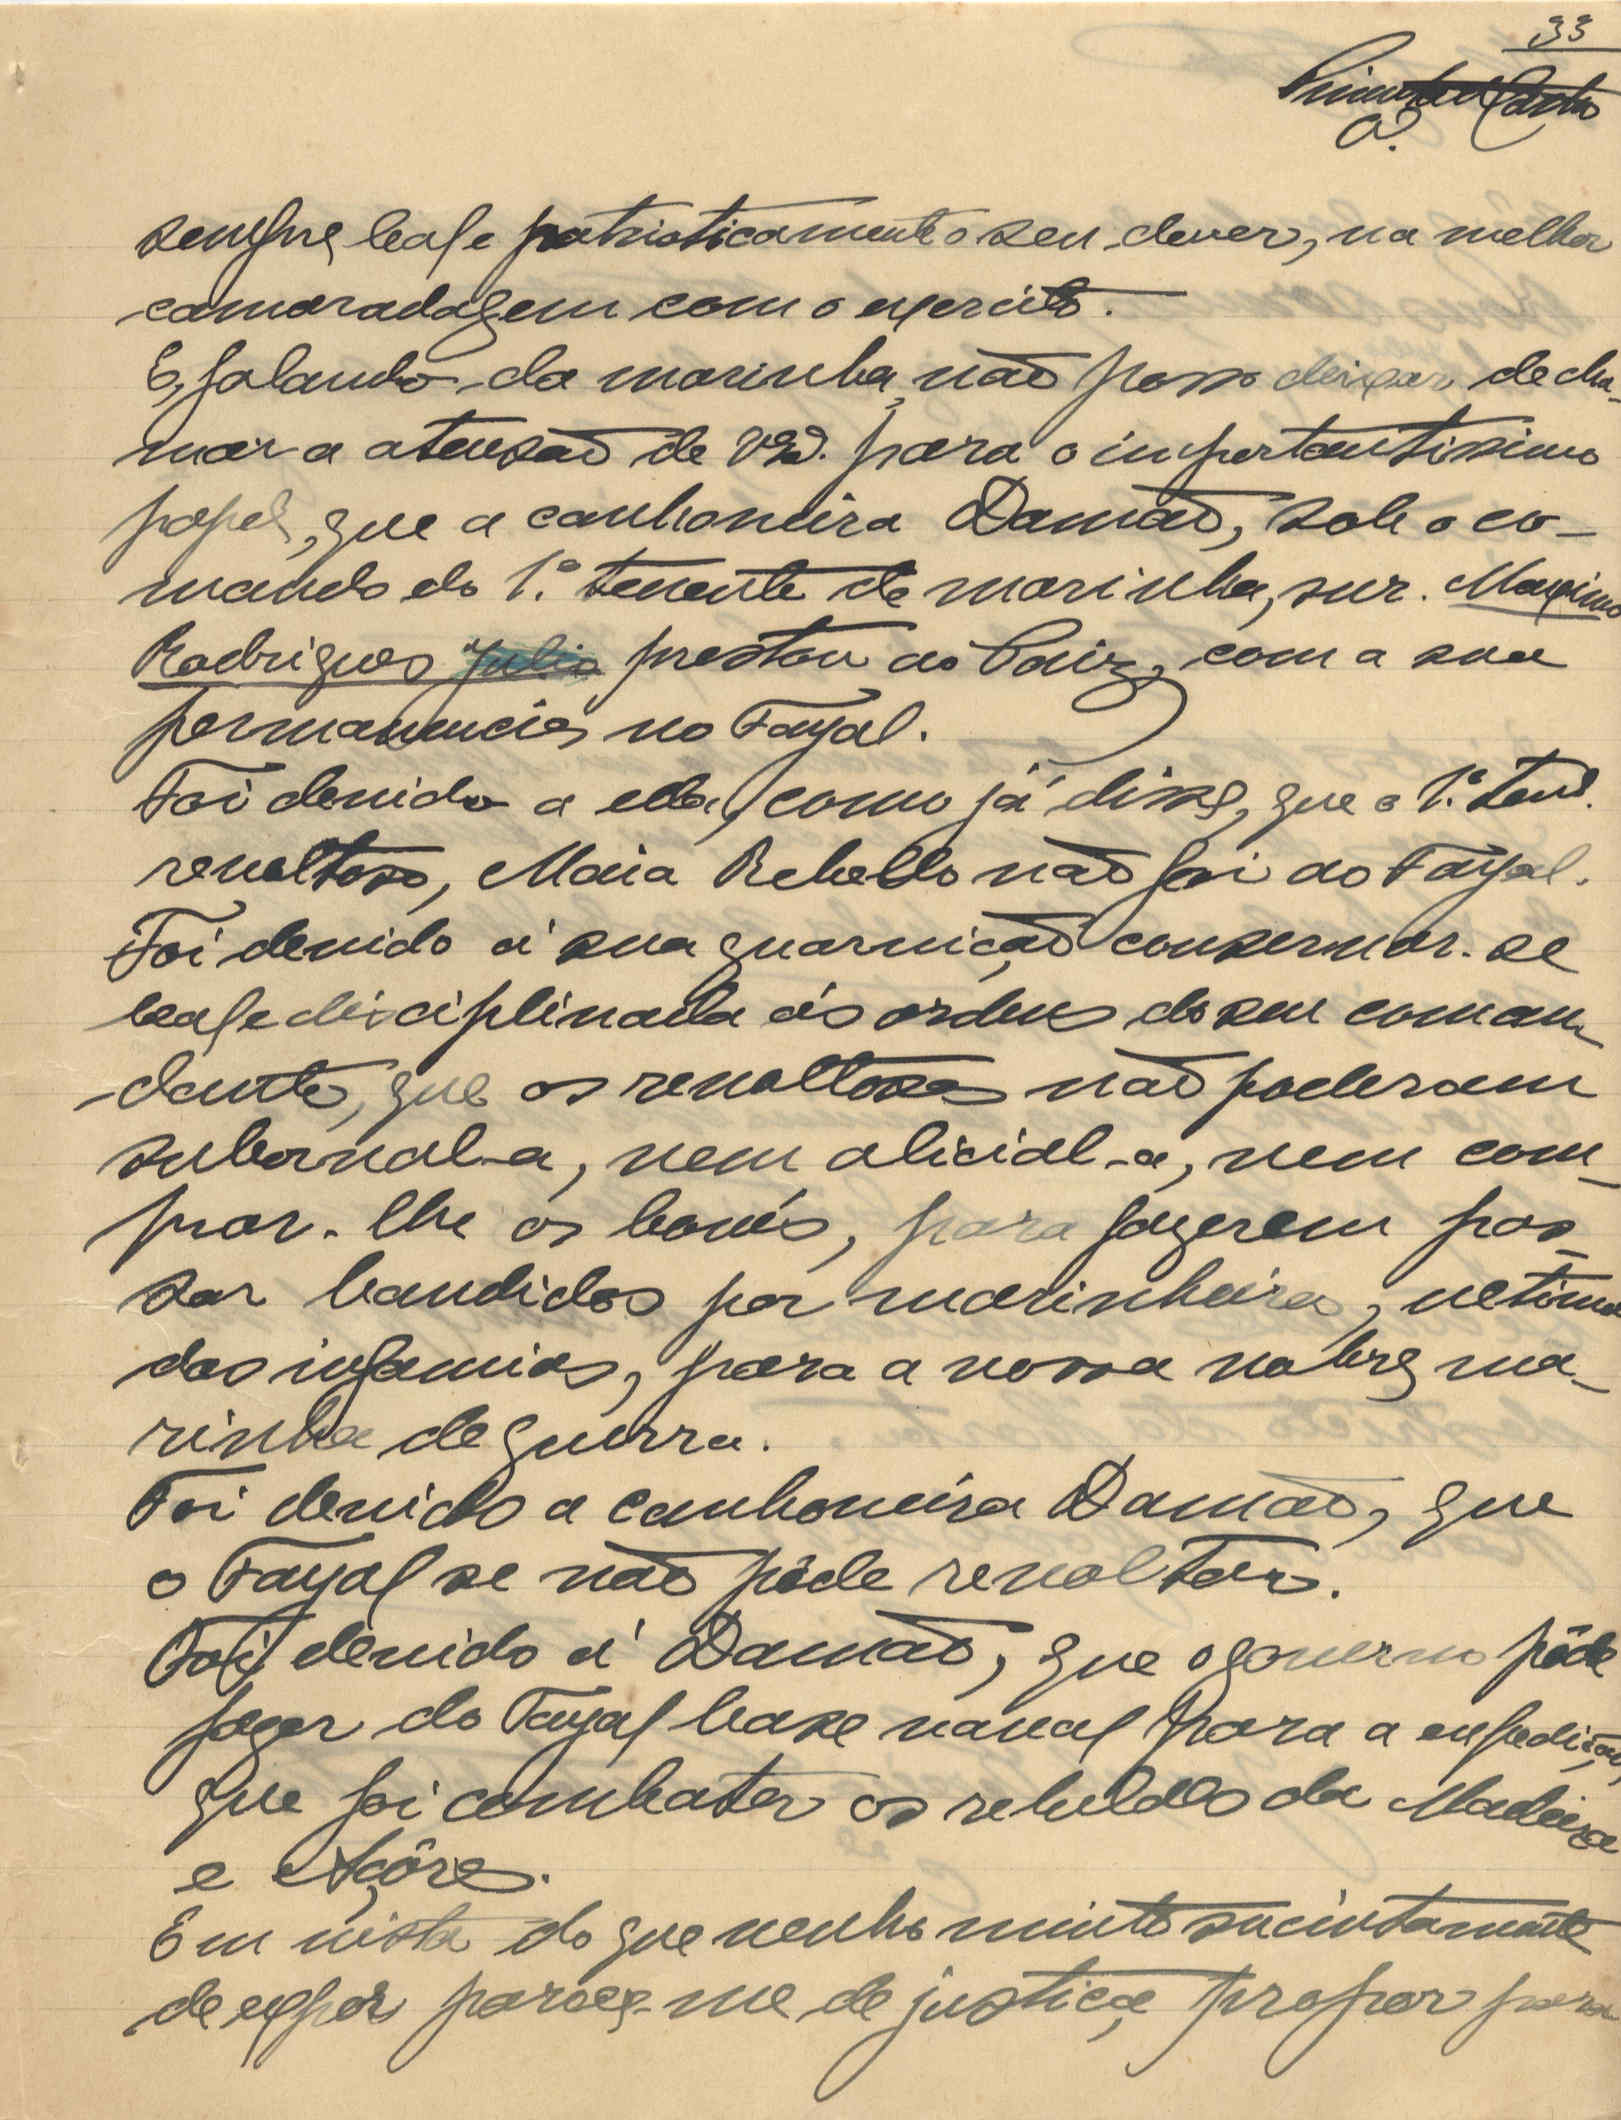 33
sempre leal e patrioticamente o seu dever, na melhor
camaradagem com o exercito.
E, falando da marinha, não posso deixar de cha-
mar a atensão de para o importantissimo
papel, que a canhoneira Damão, sob o co-
mando do 1.º tenente de marinha, snr. Maximo
Rodrigues Julio prestou ao Paiz, com a sua
permanencia no Fayal.
Foi devido a ela, como já disse, que o 1.º tent.
revoltoso, Maia Rebello não foi ao Fayal.
Foi devido á sua guarnição conservar-se
leal e disciplinada ás ordens do seu coman-
dante, que os revoltosos não poderam
subornal-a, nem alicial-a, nem com-
prar-lhe os bonés, para fazerem pas-
sar bandidos por marinheiros, ultima
das infamias, para a nossa nobre ma-
rinha de guerra.
Foi devido a canhoneira Damão, que
o Fayal se não pôde revoltar.
Foi devido á Damão, que o governo pôde
fazer do Fayal base naval para a expedição,
que foi combater os rebeldes da Madeira
e Açôres.
Em vista do que venho muito sucintamente
de expor parece-me de justiça propor para